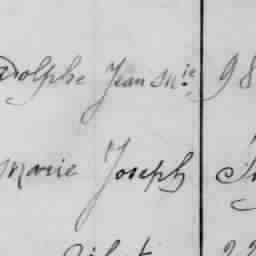 Adolphe Jean M.ie 98
Marie Joseph